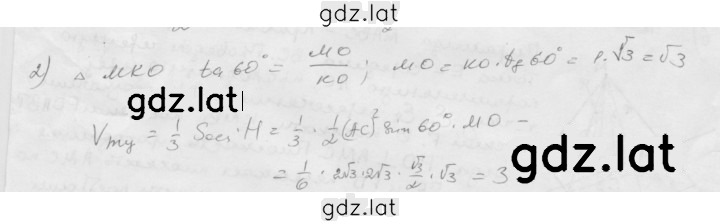 gdz.lat
2) △ MKO tg 60° = MO/KO; MO = KO·tg 60° = 1·√3 = √3
gdz.lat
V = 1/3 Sосн·H = 1/3 · 1/2 (AC)² sin 60° · MO =
gdz.lat
= 1/6 · 2√3 · 2√3 · √3/2 · √3 = 3
gdz.lat